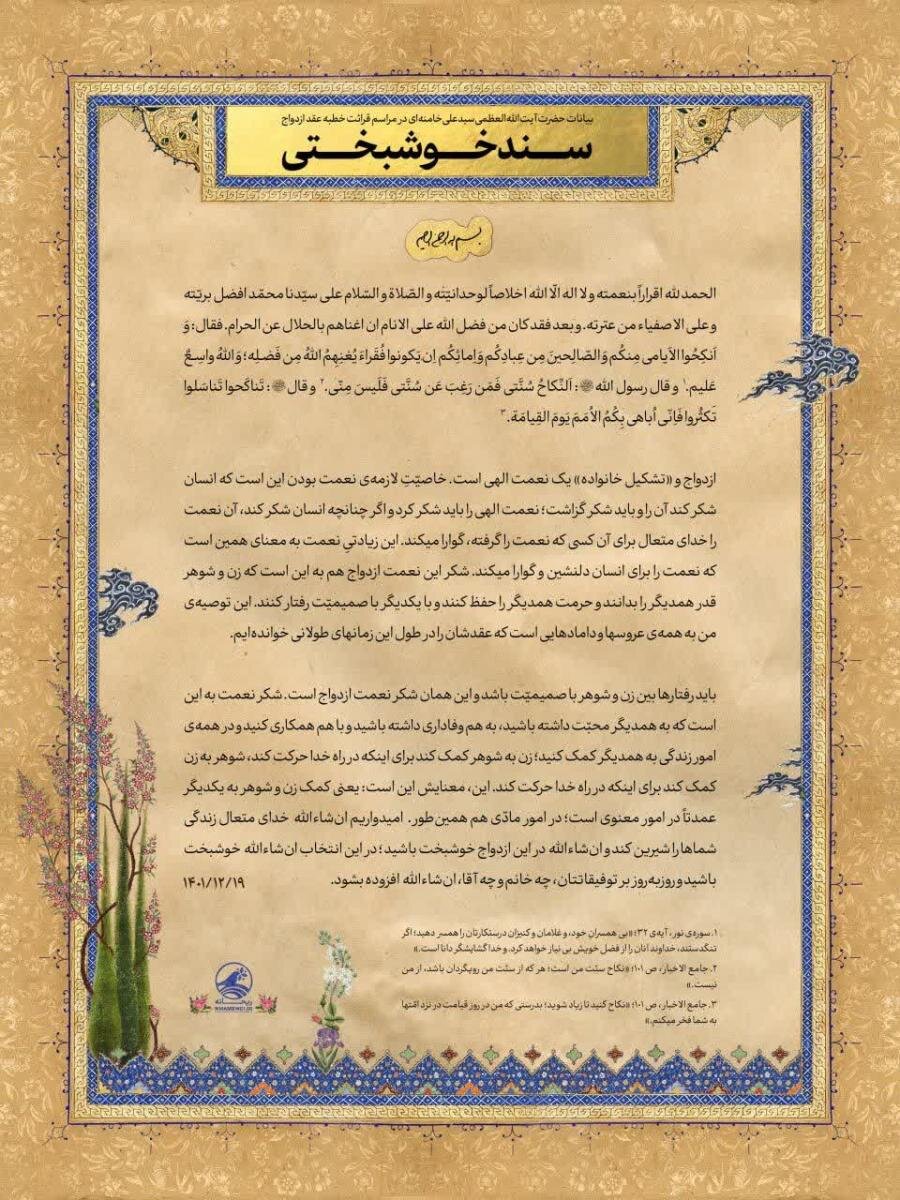 بیانات حضرت آیت‌الله‌العظمی سید علی خامنه‌ای در مراسم قرائت خطبه عقد ازدواج
سند خوشبختی
بسم الله الرحمن الرحیم
الحمد لله اقراراً بنعمته و لا اله الّا الله اخلاصاً لوحدانیّته و الصّلاة و السّلام علی سیّدنا محمّد افضل بریّته
و علی الاصفیاء من عترته. و بعد فقد کان من فضل الله علی الانام ان اغناهم بالحلال عن الحرام. فقال: وَ
اَنکِحُوا الاَیامی مِنکُم وَ الصّالِحینَ مِن عِبادِکُم وَ اِمائِکُم اِن یَکونوا فُقَراءَ یُغنِهِمُ اللهُ مِن فَضلِه؛ وَ اللهُ واسِعٌ
عَلیم.۱ و قال رسول الله ﷺ: اَلنِّکاحُ سُنَّتی فَمَن رَغِبَ عَن سُنَّتی فَلَیسَ مِنّی.۲ و قال ﷺ: تَناکَحوا تَناسَلوا
تَکثُروا فَاِنّی اُباهی بِکُمُ الاُمَمَ یَومَ القِیامَة.۳
ازدواج و «تشکیل خانواده» یک نعمت الهی است. خاصیّتِ لازمه‌ی نعمت بودن این است که انسان
شکر کند آن را و باید شکر گزاشت؛ نعمت الهی را باید شکر کرد و اگر چنانچه انسان شکر کند، آن نعمت
را خدای متعال برای آن کسی که نعمت را گرفته، گوارا میکند. این زیادتیِ نعمت به معنای همین است
که نعمت را برای انسان دلنشین و گوارا میکند. شکر این نعمت ازدواج هم به این است که زن و شوهر
قدر همدیگر را بدانند و حرمت همدیگر را حفظ کنند و با یکدیگر با صمیمیّت رفتار کنند. این توصیه‌ی
من به همه‌ی عروسها و دامادهایی است که عقدشان را در طول این زمانهای طولانی خوانده‌ایم.
باید رفتارها بین زن و شوهر با صمیمیّت باشد و این همان شکر نعمت ازدواج است. شکر نعمت به این
است که به همدیگر محبّت داشته باشید، به هم وفاداری داشته باشید و با هم همکاری کنید و در همه‌ی
امور زندگی به همدیگر کمک کنید؛ زن به شوهر کمک کند برای اینکه در راه خدا حرکت کند، شوهر به زن
کمک کند برای اینکه در راه خدا حرکت کند. این، معنایش این است: یعنی کمک زن و شوهر به یکدیگر
عمدتاً در امور معنوی است؛ در امور مادّی هم همین‌طور. امیدواریم ان‌شاءالله خدای متعال زندگی
شماها را شیرین کند و ان‌شاءالله در این ازدواج خوشبخت باشید؛ در این انتخاب ان‌شاءالله خوشبخت
باشید و روزبه‌روز بر توفیقاتتان، چه خانم و چه آقا، ان‌شاءالله افزوده بشود. ۱۴۰۱/۱۲/۱۹
۱. سوره‌ی نور، آیه‌ی ۳۲؛ «بی همسران خود، و غلامان و کنیزان درستکارتان را همسر دهید؛ اگر
تنگدستند، خداوند آنان را از فضل خویش بی نیاز خواهد کرد. و خدا گشایشگر داناست.»
۲. جامع الاخبار، ص ۱۰۱؛ «نکاح سنّت من است؛ هر که از سنّت من رویگردان باشد، از من
نیست.»
۳. جامع الاخبار، ص ۱۰۱؛ «نکاح کنید تا زیاد شوید؛ بدرستی که من در روز قیامت در نزد امّتها
به شما فخر میکنم.»
ریحانه
KHAMENEI.IR